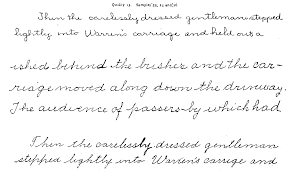 Quality 13.
Then the carelessly dressed gentleman stepped
lightly into Warren's carriage and held out a
ished behind the bushes and the car-
riage moved along down the driveway.
The audience of passers-by which had
Then the carelessly dressed gentleman
stepped lightly into Warren's carrige and